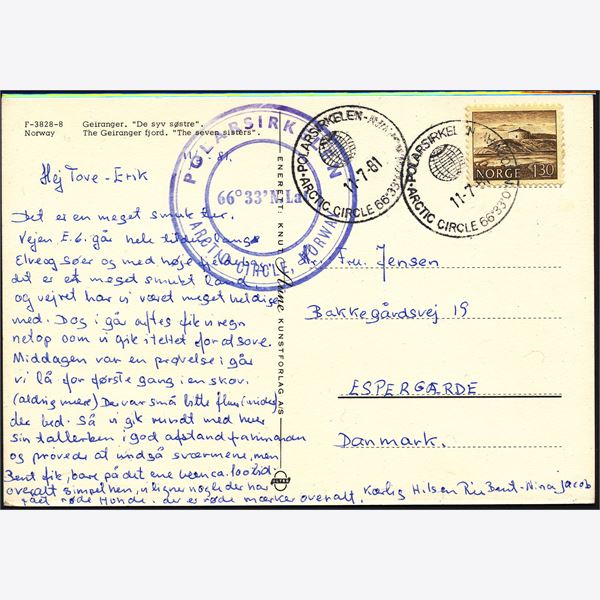 F-3828-8 Geiranger. "De syv søstre".
Norway The Geiranger fjord. "The seven sisters".
POLARSIRKELEN
66°33'N.Lat
ARCTIC CIRCLE, NORWAY
POLARSIRKELEN
11-7-81
ARCTIC CIRCLE 66°33'
POLARSIRKELEN
11-7-
ARCTIC CIRCLE 66°33'
NORGE 130
81.
Hej Tove-Erik
Det er en meget smuk tur.
Vejen E.6. går hele tiden langs
Elve og søer og med høje fjelde
det er et meget smukt land
og vejret har vi været meget heldige
med. Dog i går aftes fik vi regn
netop som vi gik i teltet for at sove.
Middagen var en prøvelse i går
vi lå for første gang i en skov.
(aldrig mere) Der var små bitte fluer
der bed. Så vi gik rundt med hver
sin tallerken i god afstand fra hinanden
og prøvede at undgå sværmene, men
Bent fik, bare på det ene ben ca. 100 bid.
overalt simpelthen, vi ligner nogle der har
røde Hunde. der er røde mærker overalt.
Kærlig Hilsen Bent-Nina Jacob
ENERETT: KNUT Aune KUNSTFORLAG A/S
Fru. Jensen
Bakkegårdsvej 19
ESPERGÆRDE
Danmark.